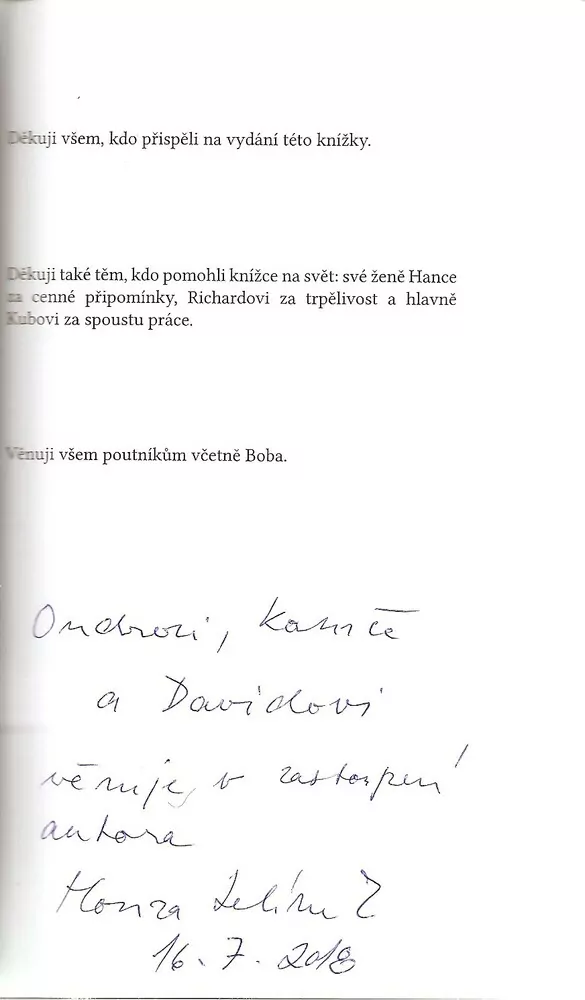 Děkuji všem, kdo přispěli na vydání této knížky.
Děkuji také těm, kdo pomohli knížce na svět: své ženě Hance
za cenné připomínky, Richardovi za trpělivost a hlavně
Kubovi za spoustu práce.
Věnuji všem poutníkům včetně Boba.
Ondrovi,
a Davidovi
věnuje v zastoupení
autora
Honza
16. 7. 2018